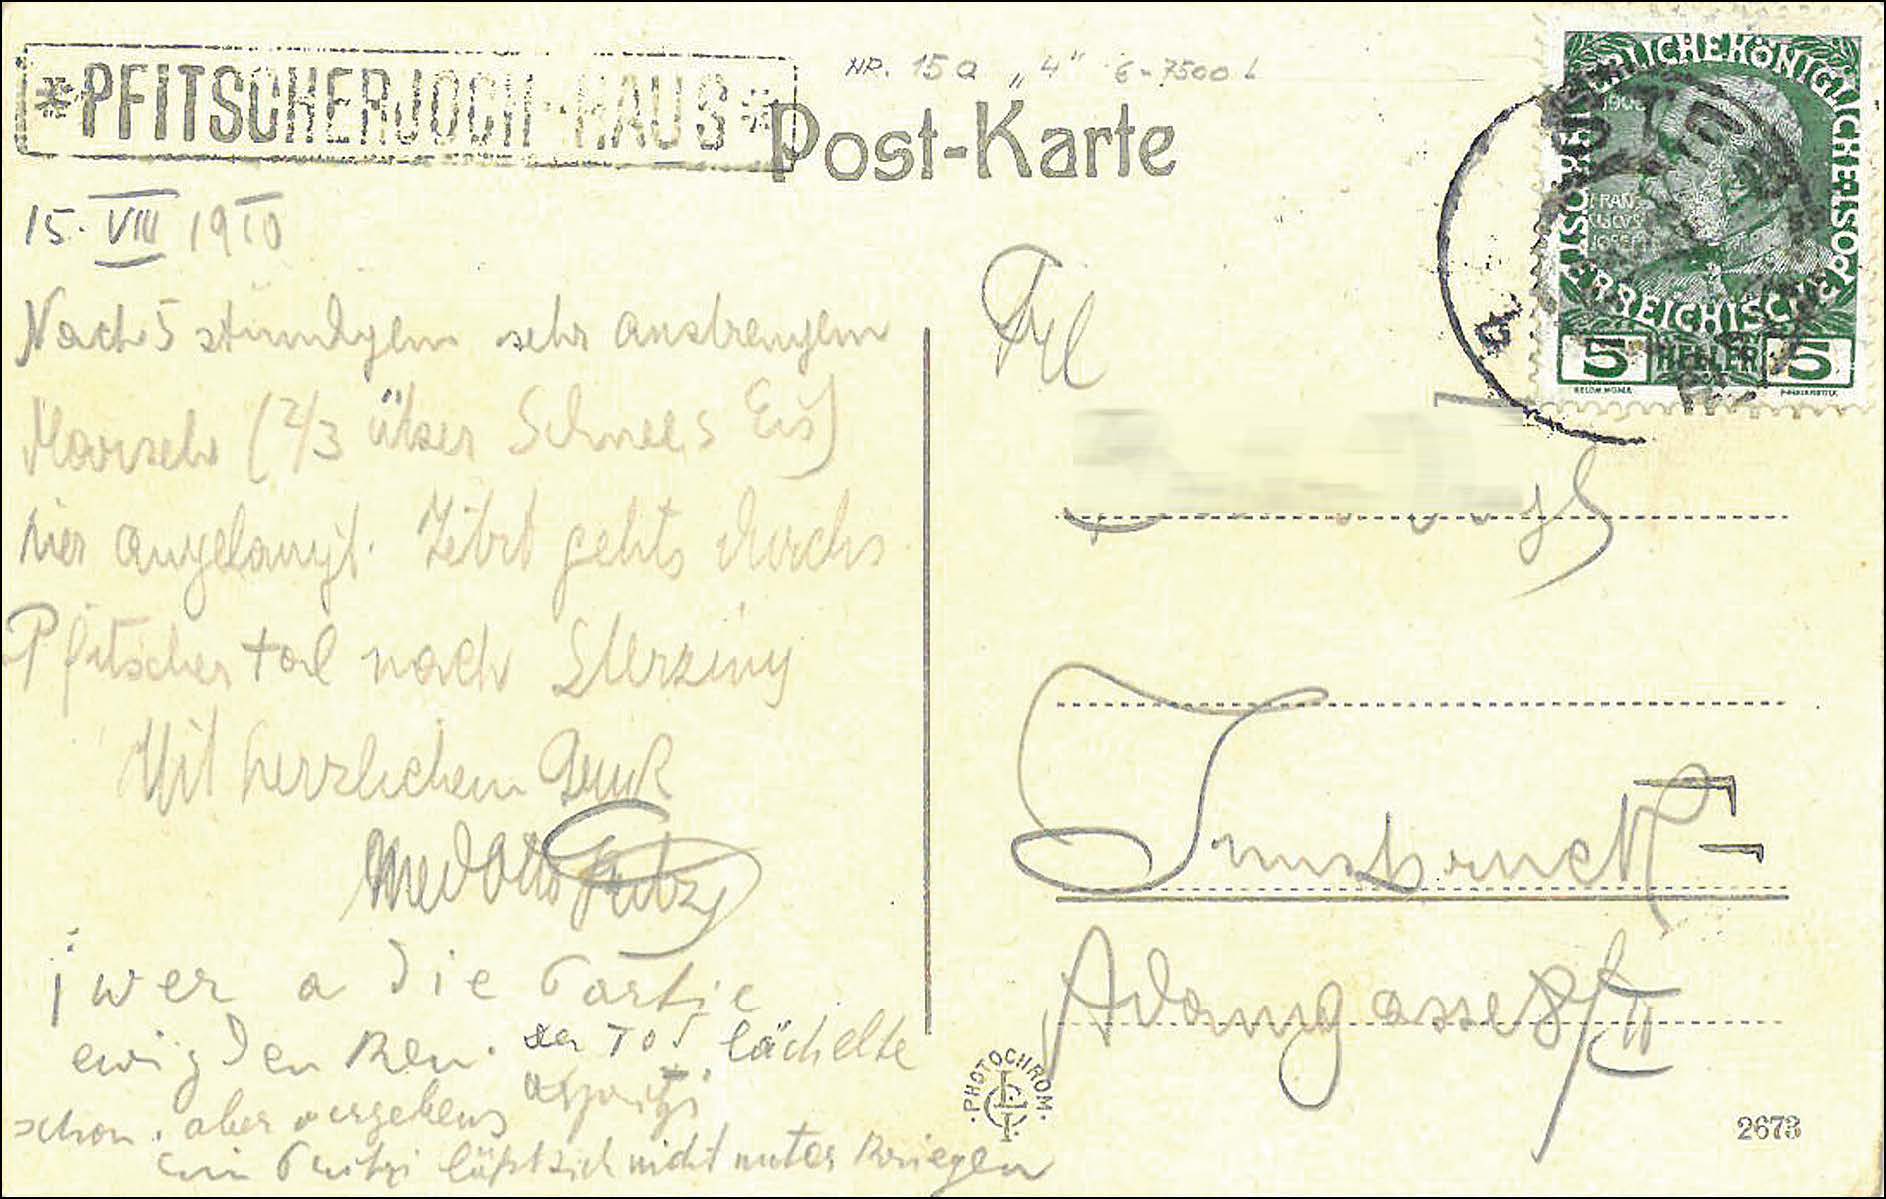 * PFITSCHERJOCH-HAUS *
NR. 15a "4" 6-7500 L
Post-Karte
15. VIII 1910
Nach 5 stündigem sehr anstrengem
Marsche (2/3 über Schnee & Eis)
hier angelangt. Jetzt gehts durchs
Pfitscher tal nach Sterzing
Mit herzlichem Gruß
Otto
i wer a die Partie
ewig denken. der Tod lächelte
schon. aber vergebens
ein läßt sich nicht unter kriegen
Frl
Innsbruck
Adamgasse 8/II
KAISERLICHE KÖNIGLICHE ÖSTERREICHISCHE POST
1908
FRAN
CISCVS
JOSEPH
5 HELLER 5
PHOTOCHROM
2673